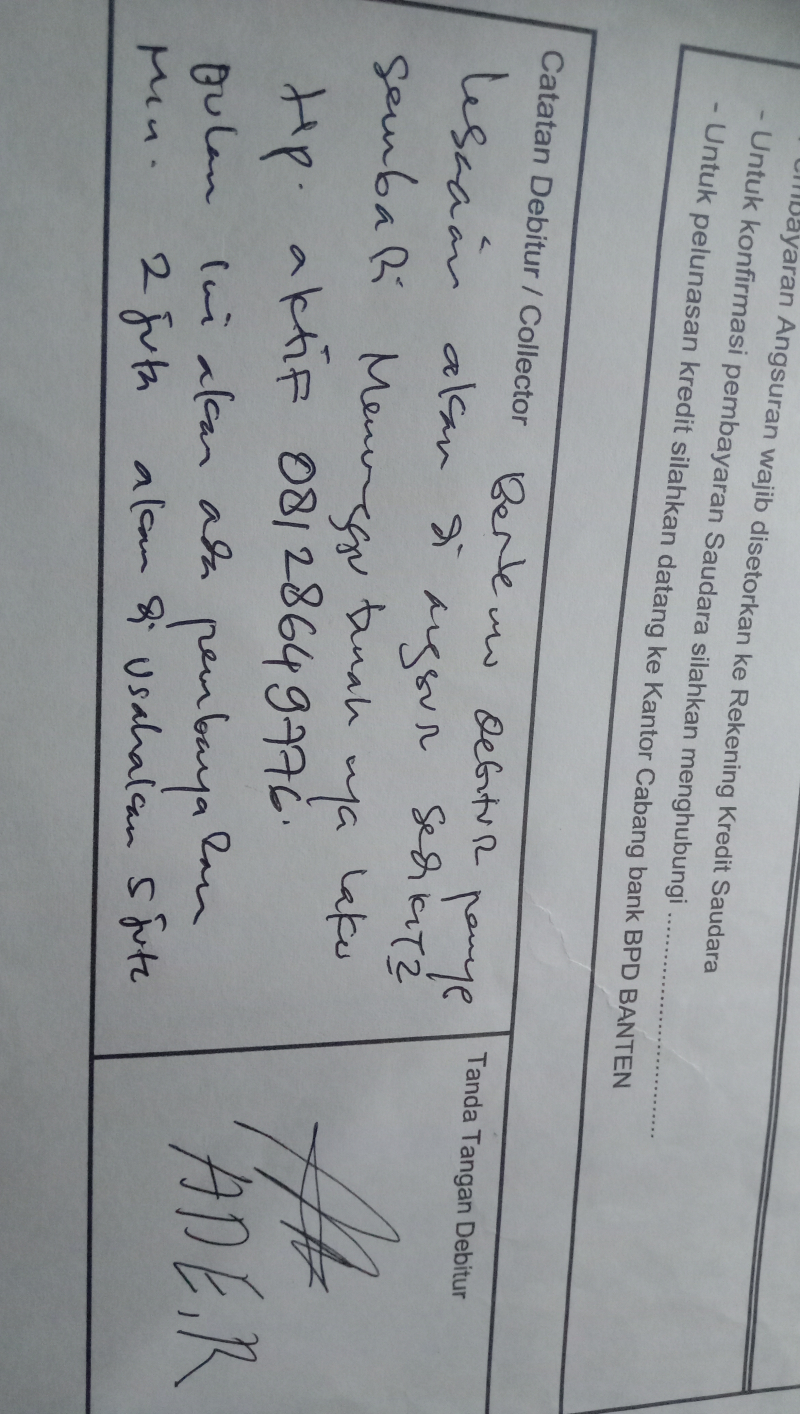 Pembayaran Angsuran wajib disetorkan ke Rekening Kredit Saudara
- Untuk konfirmasi pembayaran Saudara silahkan menghubungi ..............................
- Untuk pelunasan kredit silahkan datang ke Kantor Cabang bank BPD BANTEN
Catatan Debitur / Collector Bertemu debitur penye
lesaian akan di angsur sedikit2
sembari Menunggu tanah nya laku
Hp. aktif 081286649776.
Bulan ini akan ada pembayaran
Min. 2 juta akan di usahakan 5 juta
Tanda Tangan Debitur
ADE.R